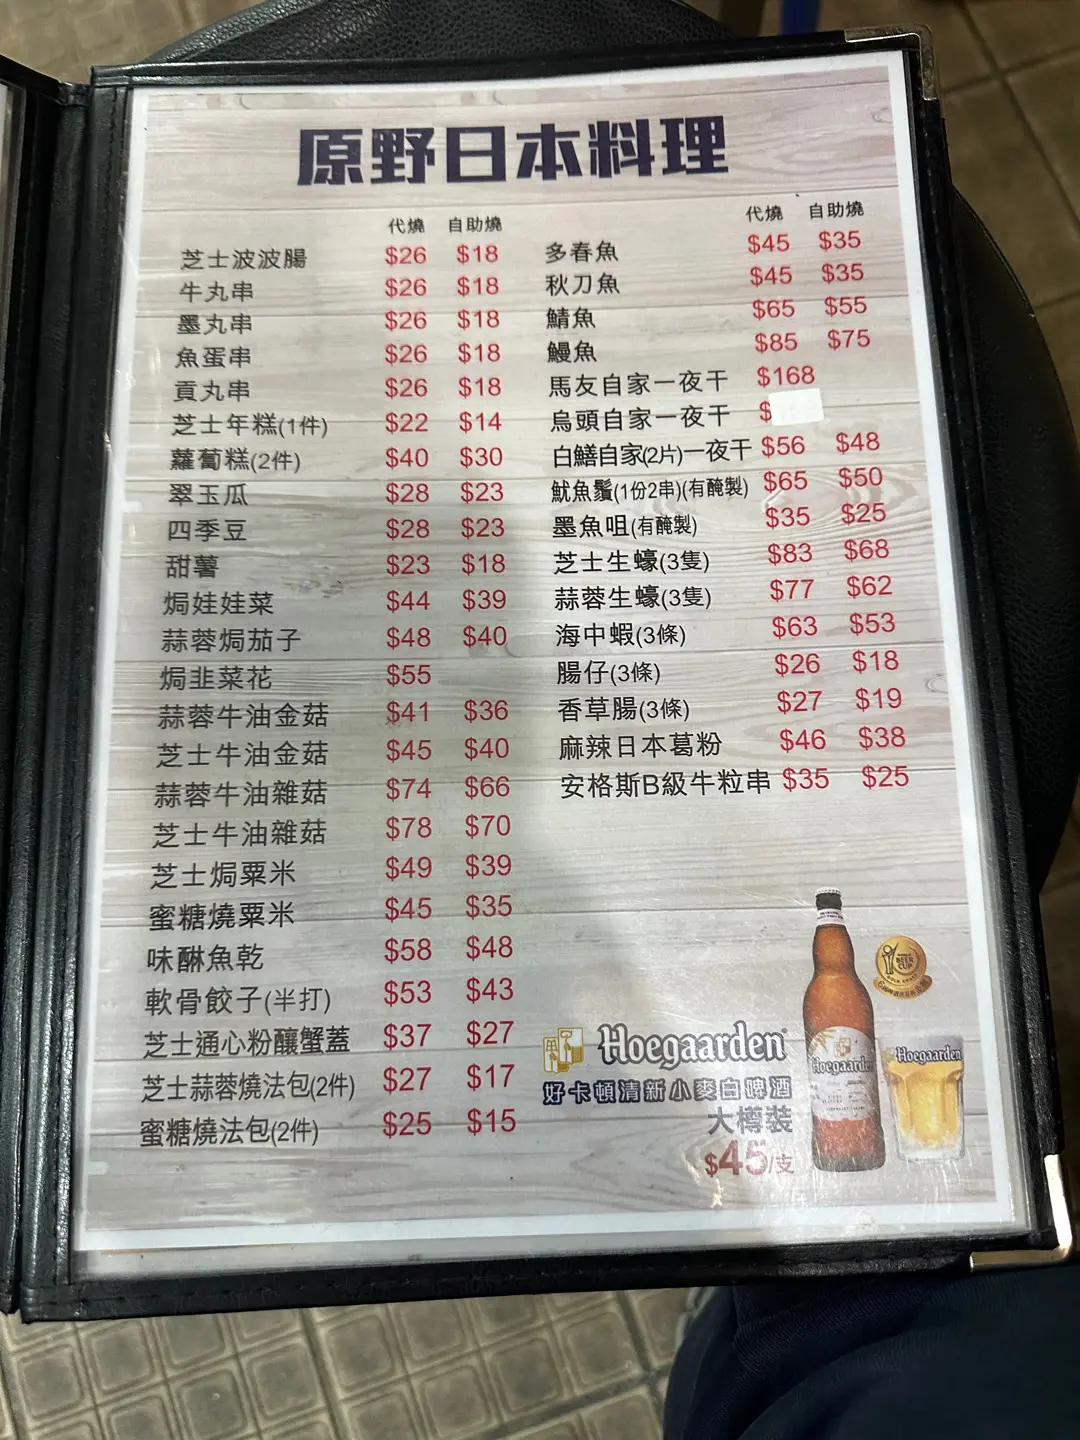 原野日本料理
代燒 自助燒
芝士波波腸 $26 $18
牛丸串 $26 $18
墨丸串 $26 $18
魚蛋串 $26 $18
貢丸串 $26 $18
芝士年糕(1件) $22 $14
蘿蔔糕(2件) $40 $30
翠玉瓜 $28 $23
四季豆 $28 $23
甜薯 $23 $18
焗娃娃菜 $44 $39
蒜蓉焗茄子 $48 $40
焗韭菜花 $55
蒜蓉牛油金菇 $41 $36
芝士牛油金菇 $45 $40
蒜蓉牛油雜菇 $74 $66
芝士牛油雜菇 $78 $70
芝士焗粟米 $49 $39
蜜糖燒粟米 $45 $35
味醂魚乾 $58 $48
軟骨餃子(半打) $53 $43
芝士通心粉釀蟹蓋 $37 $27
芝士蒜蓉燒法包(2件) $27 $17
蜜糖燒法包(2件) $25 $15
代燒 自助燒
多春魚 $45 $35
秋刀魚 $45 $35
鯖魚 $65 $55
鰻魚 $85 $75
馬友自家一夜干 $168
烏頭自家一夜干 $
白鱔自家(2片)一夜干 $56 $48
魷魚鬚(1份2串)(有醃製) $65 $50
墨魚咀(有醃製) $35 $25
芝士生蠔(3隻) $83 $68
蒜蓉生蠔(3隻) $77 $62
海中蝦(3條) $63 $53
腸仔(3條) $26 $18
香草腸(3條) $27 $19
麻辣日本葛粉 $46 $38
安格斯B級牛粒串 $35 $25
Hoegaarden
好卡頓清新小麥白啤酒
大樽裝
$45/支
BEER
CUP
Hoegaarden
Hoegaarden